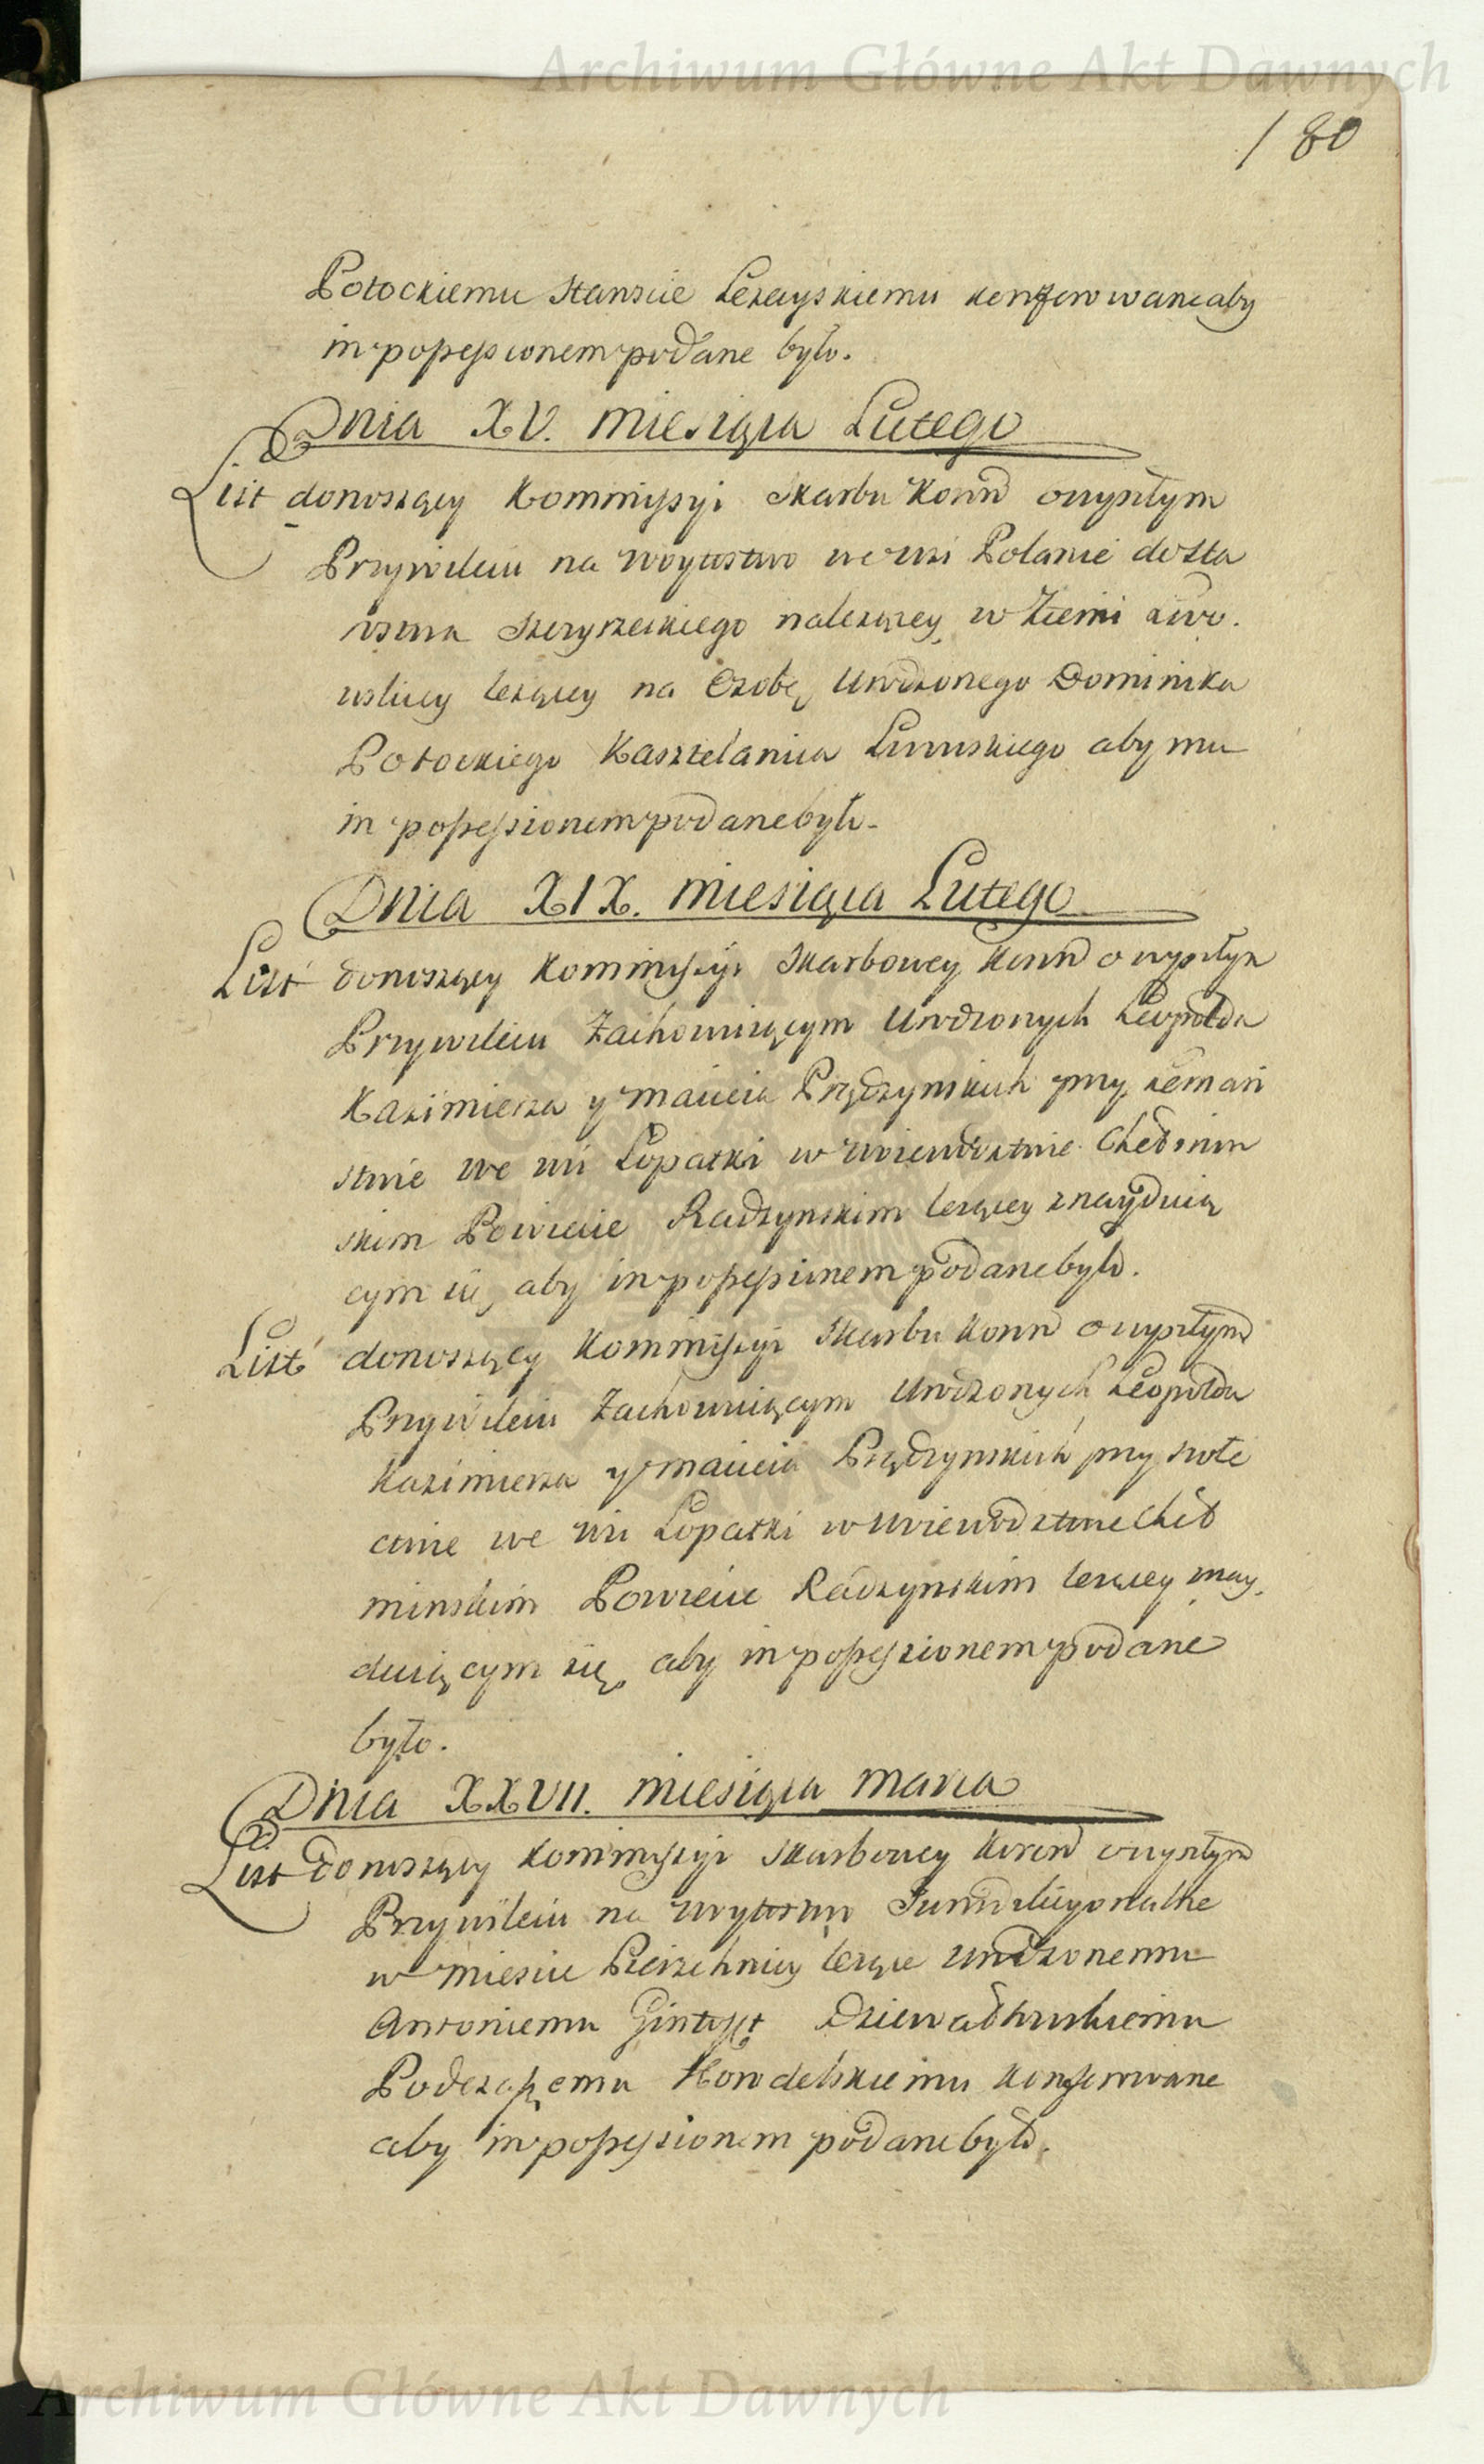 Archiwum Główne Akt Dawnych
180
Potockiemu Staroście Leżayskiemu konferowane aby
in possessionem podane było.
Dnia XV. miesiąca Lutego
List donoszący Kommissyi Skarbu Koron o wyszłym
Przywileiu na woytostwo we wsi Polanie do Sta
rostwa należącey w Ziemi Lwo.
wskiey leżącey na Osobę Urodzonego Dominika
Potockiego Kasztelanica aby mu
in possessionem podane było.
Dnia XIX. miesiąca Lutego
List donoszący Kommissyi Skarbowey Koron o wyszłym
Przywileiu Zachowuiącym Urodzonych Leopolda
Kazimierza y Macieia Prądzynskich przy Leman
stwie we wsi Łopatki w woiewodztwie Chełmin
skim Powiecie Radzynskim leżącey znayduią
cym się, aby in possessionem podane było.
List donoszący Kommissyi Skarbu Koron o wyszłym
Przywileiu Zachowuiącym Urodzonych Leopolda
Kazimierza y Macieia Prądzynskich przy Sołe
ctwie we wsi Łopatki w woiewodztwie Cheł
minskim Powiecie Radzynskim leżącey znay.
duiącym się, aby in possessionem podane
było.
Dnia XXVII. miesiąca Marca
List donoszący Kommissyi Skarbowey Koron o wyszłym
Przywileiu na woytostwo
w miescie Pierzchnicy leżące Urodzonemu
Antoniemu Gintoft Dziewałtowskiemu
Podczaszemu Horodelskiemu konferowane
aby in possessionem podane było.
Archiwum Główne Akt Dawnych